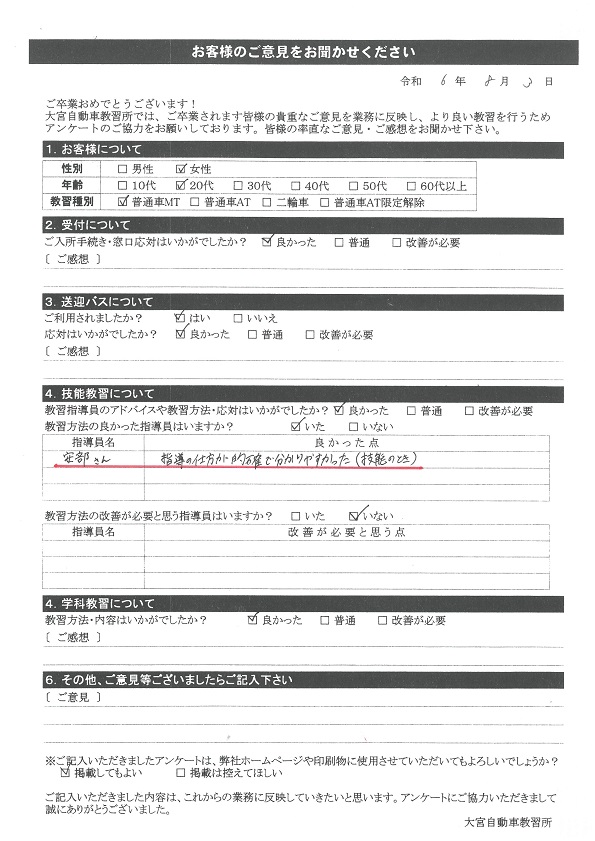 お客様のご意見をお聞かせください
令和 6 年 8 月 3 日
ご卒業おめでとうございます！
大宮自動車教習所では、ご卒業されます皆様の貴重なご意見を業務に反映し、より良い教習を行うため
アンケートのご協力をお願いしております。皆様の率直なご意見・ご感想をお聞かせ下さい。
1. お客様について
性別 □ 男性 ☑ 女性
年齢 □ 10代 ☑ 20代 □ 30代 □ 40代 □ 50代 □ 60代以上
教習種別 ☑ 普通車MT □ 普通車AT □ 二輪車 □ 普通車AT限定解除
2. 受付について
ご入所手続き・窓口応対はいかがでしたか？ ☑ 良かった □ 普通 □ 改善が必要
〔 ご感想 〕
3. 送迎バスについて
ご利用されましたか？ ☑ はい □ いいえ
応対はいかがでしたか？ ☑ 良かった □ 普通 □ 改善が必要
〔 ご感想 〕
4. 技能教習について
教習指導員のアドバイスや教習方法・応対はいかがでしたか？ ☑ 良かった □ 普通 □ 改善が必要
教習方法の良かった指導員はいますか？ ☑ いた □ いない
指導員名 良かった点
安部さん 指導の仕方が的確で分かりやすかった（技能のとき）
教習方法の改善が必要と思う指導員はいますか？ □ いた ☑ いない
指導員名 改善が必要と思う点
4. 学科教習について
教習方法・内容はいかがでしたか？ ☑ 良かった □ 普通 □ 改善が必要
〔 ご感想 〕
6. その他、ご意見等ございましたらご記入下さい
〔 ご意見 〕
※ご記入いただきましたアンケートは、弊社ホームページや印刷物に使用させていただいてもよろしいでしょうか？
☑ 掲載してもよい □ 掲載は控えてほしい
ご記入いただきました内容は、これからの業務に反映していきたいと思います。アンケートにご協力いただきまして
誠にありがとうございました。
大宮自動車教習所